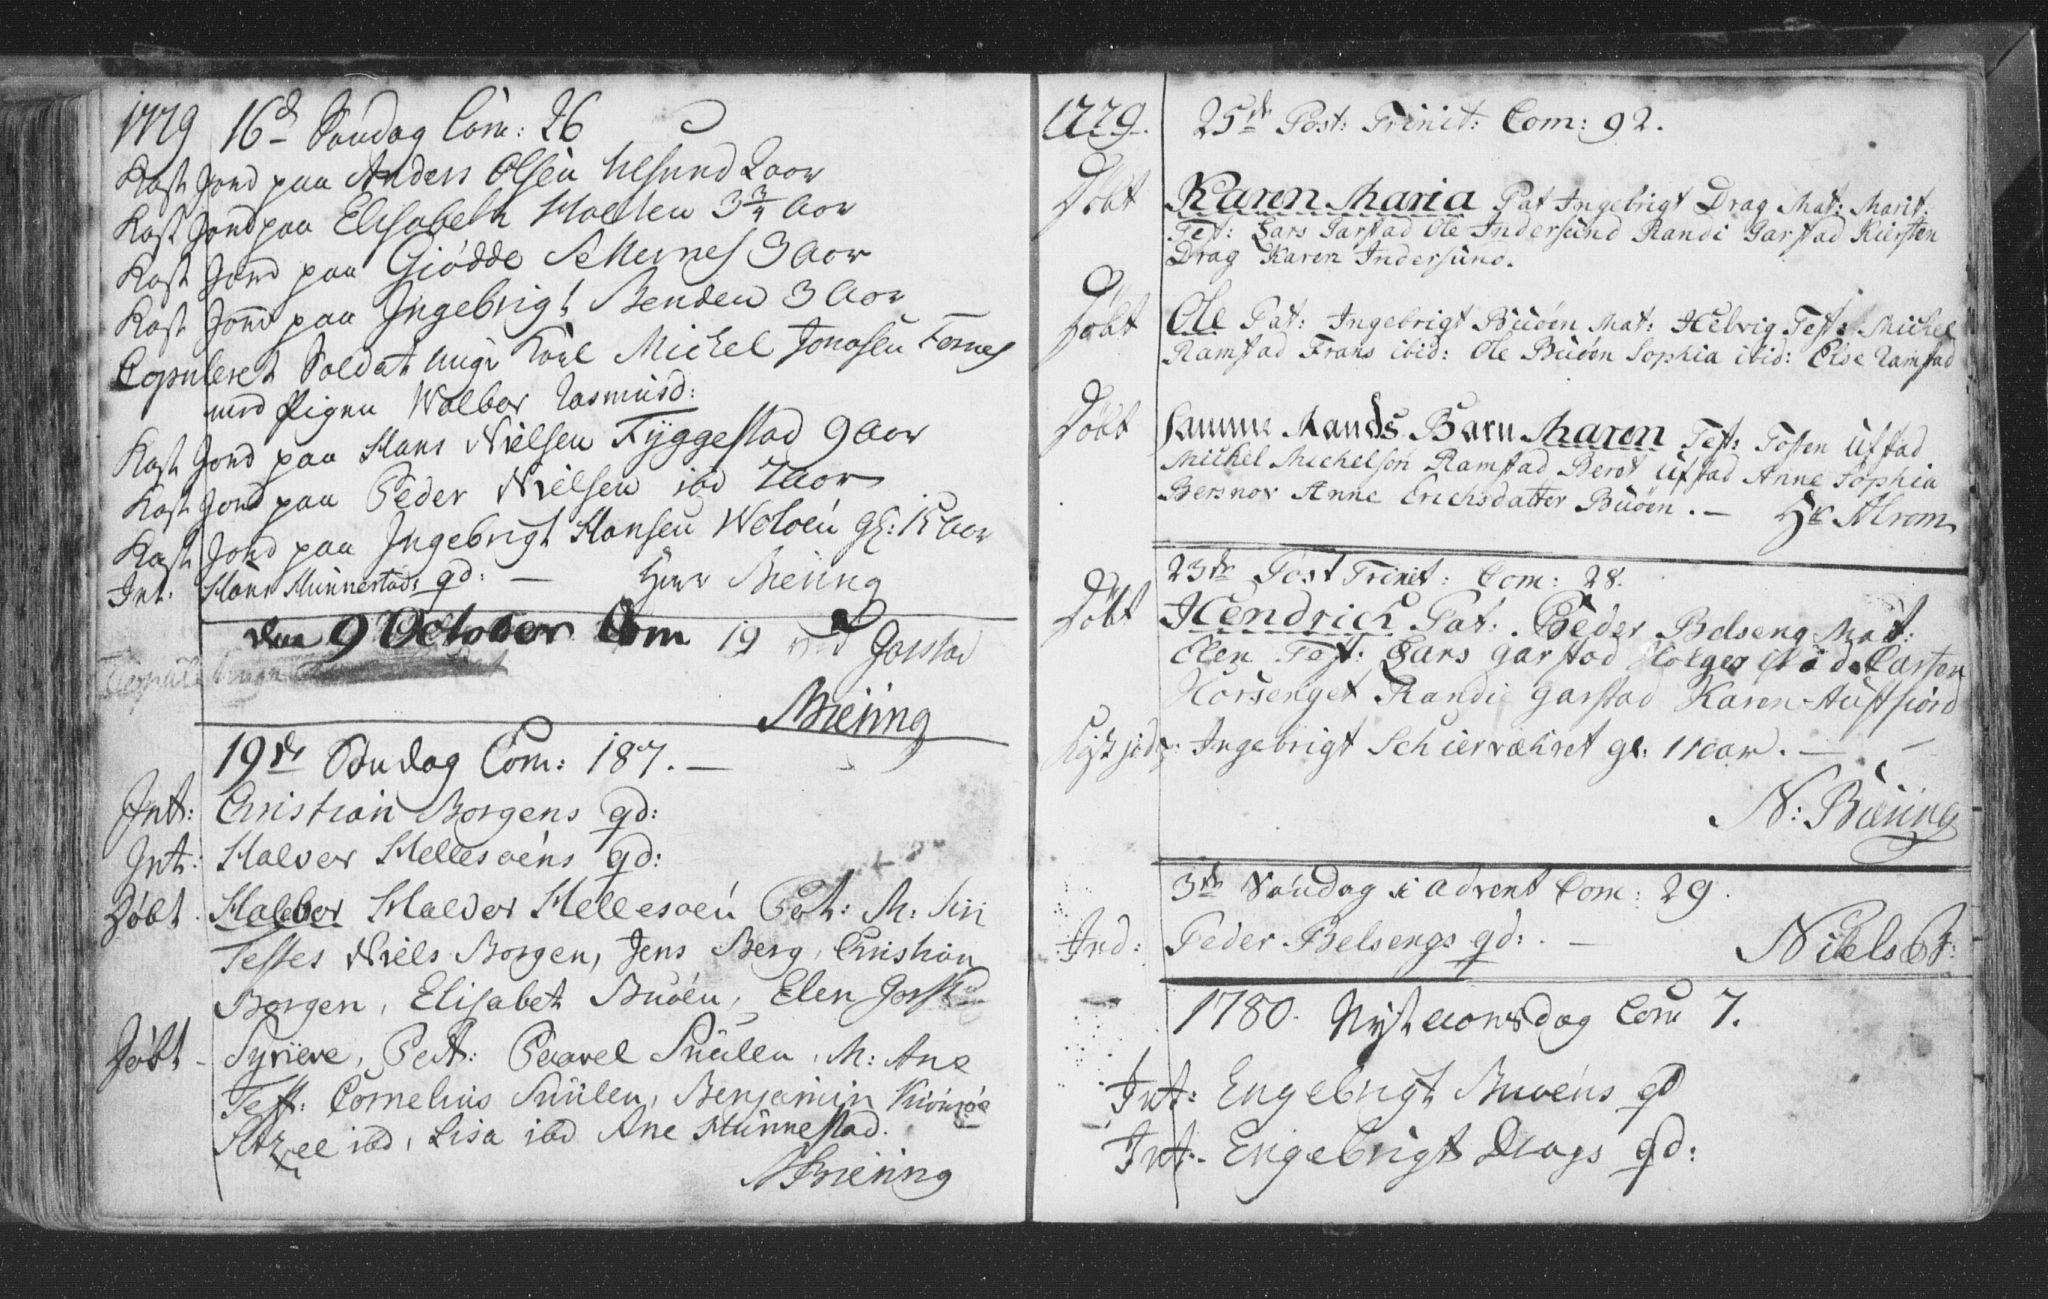 1779 16d Søndag Com: 26
Kast Jord paa Anders Olsen Ulsund 2 aar
Kast Jord paa Elisabeth Halden 3 3/4 Aar
Kast Jord paa Giødde Setternes 3 Aar
Kast Jord paa Ingebrigt Benden 3 Aar
Copuleret Soldat unge Karl Michel Jonasen Fornes
med Pigen Wolbor Rasmusd:
Kast Jord paa Hans Nielsen Fyggestad 9 Aar
Kast Jord paa Peder Nielsen ibd 7 Aar
Kast Jord paa Ingebrigt Hansen Weløen gl: 15 Aar
Int: Hans Hunnestads qd: — Herr Biering
den 9 October Com 19 ved Jørstad
Biering
19de Søndag Com: 187. —
Int: Christian Borgens qd:
Int: Halvor Hellesøens qd:
Døbt Halvor Halvor Hellesøen Pat: M: Siri
Testes Niels Borgen, Jens Berg, Christian
Borgen, Elisabet Buøen, Elen
Døbt Syneve, Pat: Paavel Snulen, M: Ane
Test: Cornelius Snulen, Benjamin
ibd, Lisa ibd Ane Hunnestad.
NBiering
1779. 25de Post: Trinit: Com: 92.
Døbt Karen Maria Pat Ingebrigt Drag Mat: Marit:
Test: Lars Garstad Ole Indersund Randi Garstad Kiersten
Drag Karen Indersund.
Døbt Ole Pat: Ingebrigt Buöen Mat: Helvig Test: Michel
Ramstad Frans ibid: Ole Buöen Sophia ibid: Else Ramstad
Døbt Samme Mands Barn Maren Test: Tosten Ufstad
Michel Michelsen Ramstad Berot Ufstad Anne Sophia
Bersnov Anne Erichsdatter Buöen. — Hr Strom
23de Post Trinit: Com: 28.
Døbt Hendrich Pat: Peder Belseng Mat:
Elen Test: Lars Garstad Holger ibid Carsten
Horsenget Randie Garstad Karen Austfiord
Ingebrigt Schiervækset gl: 11 aar. —
N: Biering
3de Søndag i Advent Com: 29.
Ind: Peder Belsengs qd: . — Niels B:
1780. Nyt aarsdag Com 7.
Int: Engebrigt Buøens qd
Int: Engebrigt Drags qd: